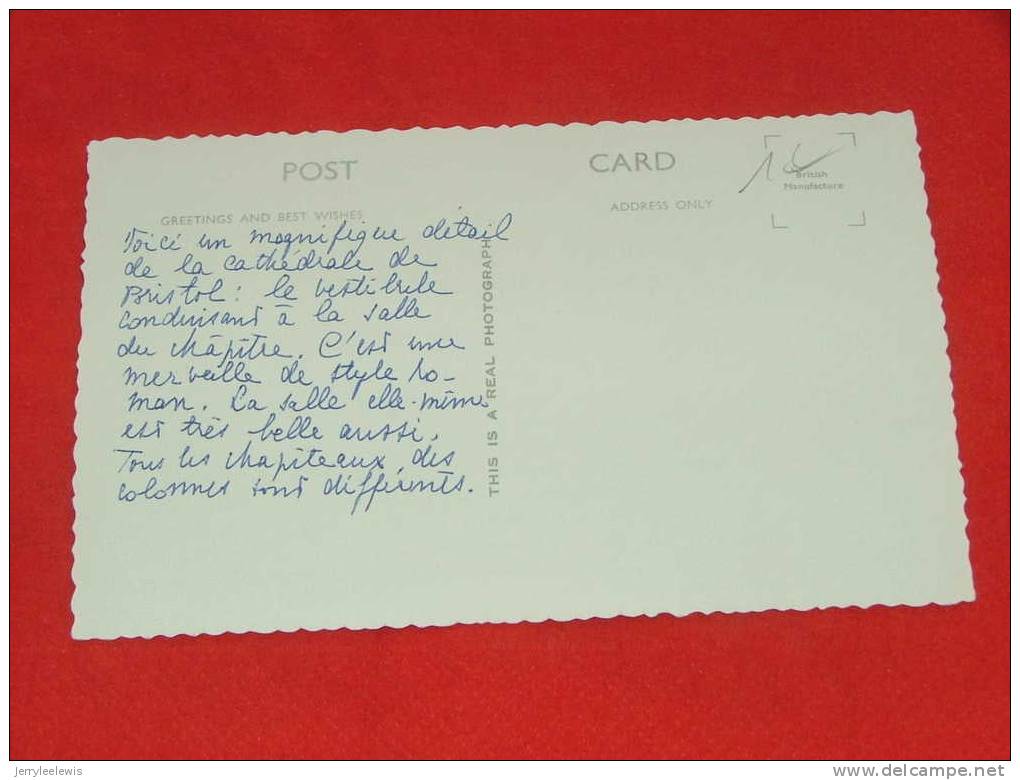 POST CARD
British
Manufacture
GREETINGS AND BEST WISHES
ADDRESS ONLY
Voici un magnifique détail
de la cathédrale de
Bristol : le vestibule
conduisant à la salle
du chapître. C'est une
merveille de style ro-
man. La salle elle-même
est très belle aussi.
Tous les chapiteaux des
colonnes sont différents.
THIS IS A REAL PHOTOGRAPH
jerryleelewis
delcampe.net